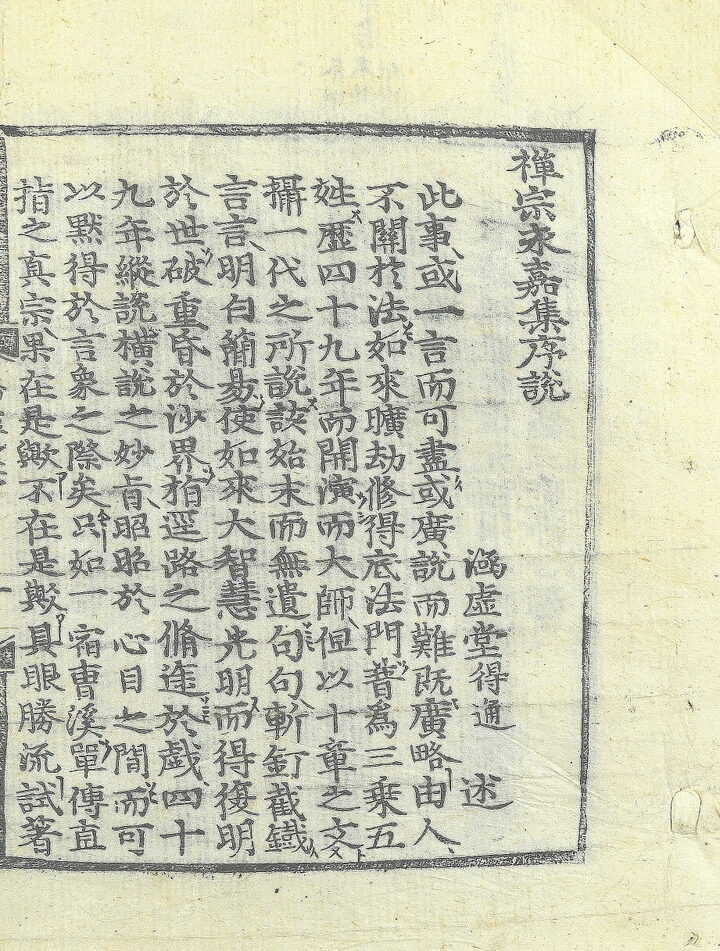 禪宗永嘉集序說
涵虛堂得通 述
此事或一言而可盡或廣說而難既廣略由人
不關於法如來曠劫修得底法門普為三乘五
姓歷四十九年而開演而大師但以十章之文
攝一代之所說該始末而無遺句句斬釘截鐵
言言明白簡易使如來大智慧光明而得復明
於世破重昏於沙界拍逕路之脩途於戲四十
九年縱說橫說之妙旨昭昭於心目之間而可
以默得於言象之際矣只如一宿曹溪單傳直
指之真宗果在是歟不在是歟具眼勝流試著